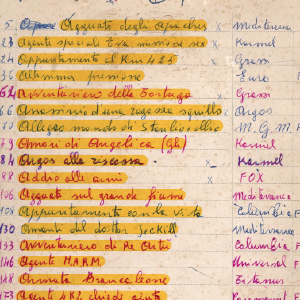 5 Agguato degli Apaches x Mediterranea
23 Agente speciale Eva missione sex x Karmel
24 Appuntamento al Km 423 x Grassi
36 Altissima pressione Euro
62 Avventuriero della Tortuga x Grassi
66 Anonimo d'una ragazza squillo x Argos
77 Allegro mondo di Stanlio e Ollio x M. G. M.
79 Amori di Angelica (Gli) Karmel
84 Argos alla riscossa x Karmel
88 Addio alle armi x FOX
106 Agguato sul grande fiume Mediterranea
108 Appuntamento con la vita Columbia
130 Amanti del dottor Jeckill Mediterranea
133 Avventuriero di Re Artù Columbia F
146 Agente H.A.R.M. Universal F
148 Armata Brancaleone Titanus
173 Agente 4K2 chiede aiuto